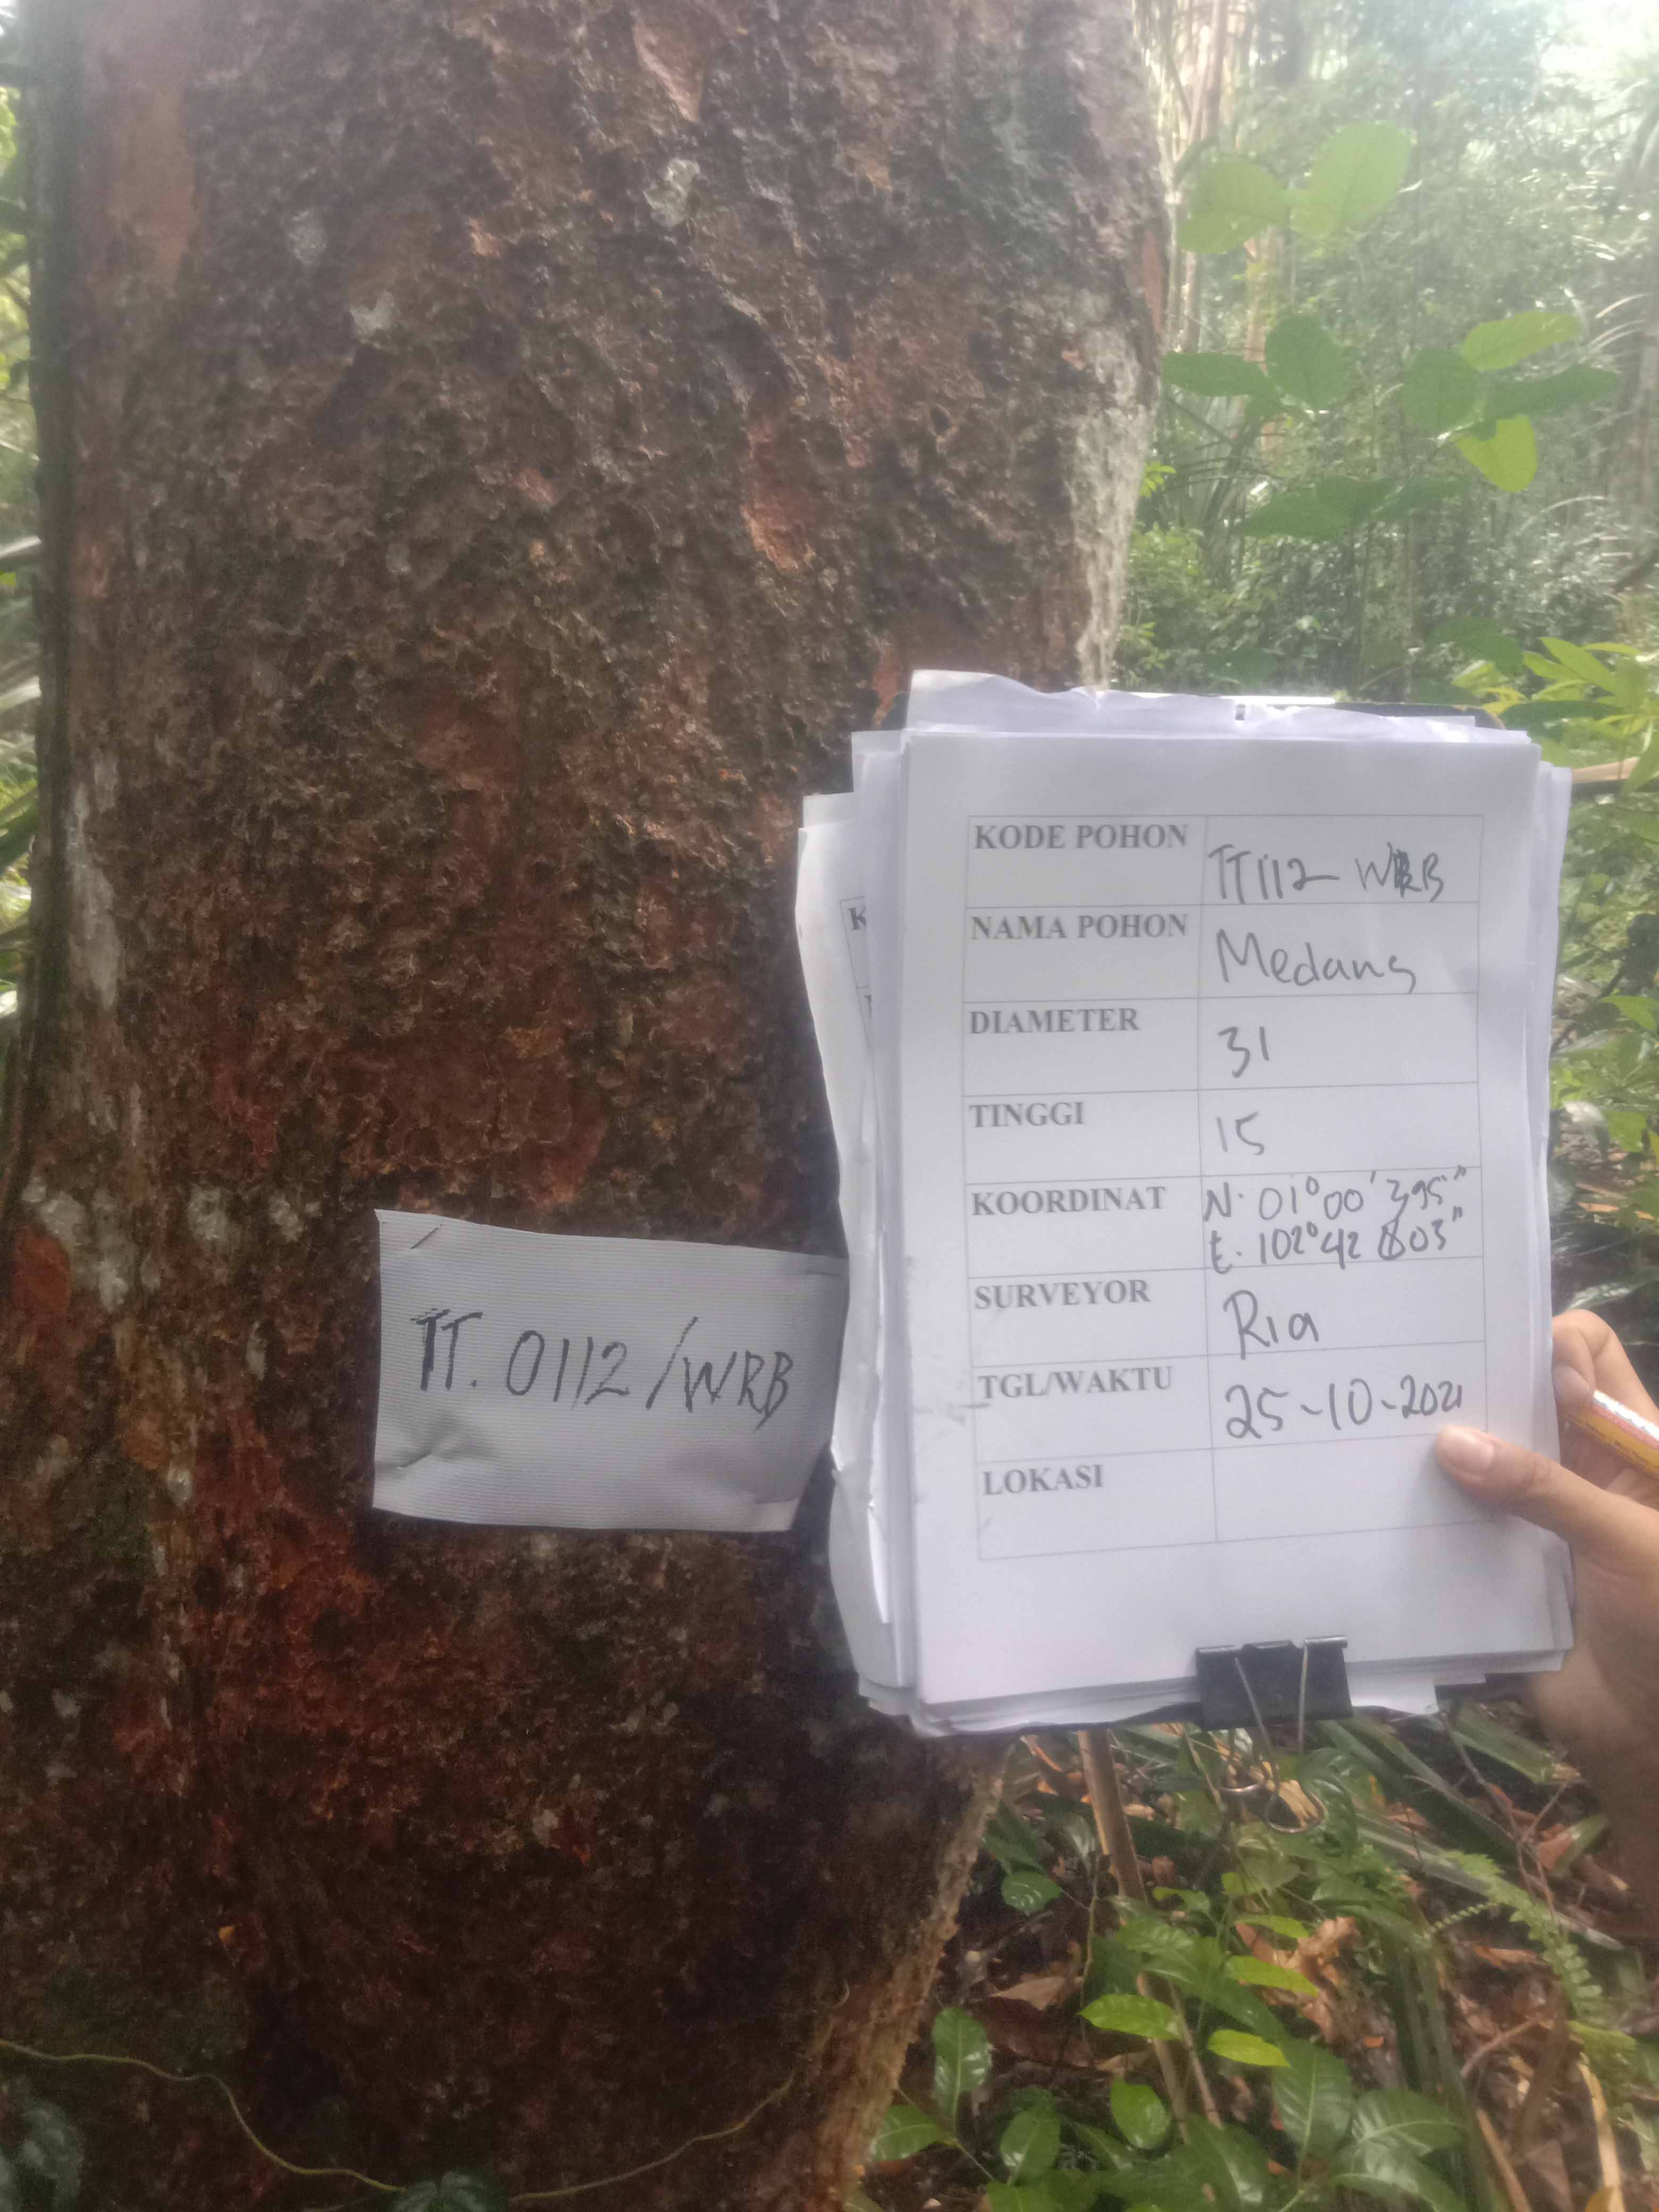 TT. 0112/WRB
KODE POHON TT112 WRB
NAMA POHON Medang
DIAMETER 31
TINGGI 15
KOORDINAT N. 01°00'395"
E. 102°42 803"
SURVEYOR Ria
TGL/WAKTU 25-10-2021
LOKASI
K